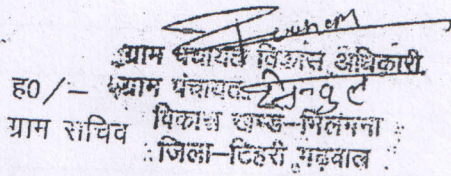 ग्राम पंचायत विकास अधिकारी
ह0/- ग्राम पंचायत
ग्राम सचिव विकास खण्ड-भिलंगना
जिला-टिहरी गढ़वाल